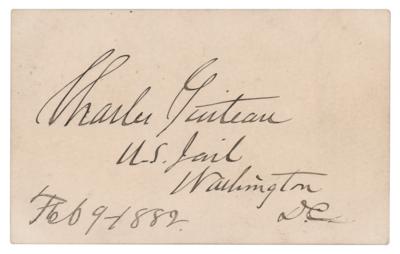 Charles Guiteau
U.S. Jail
Washington
D.C.
Feb 9-1882.